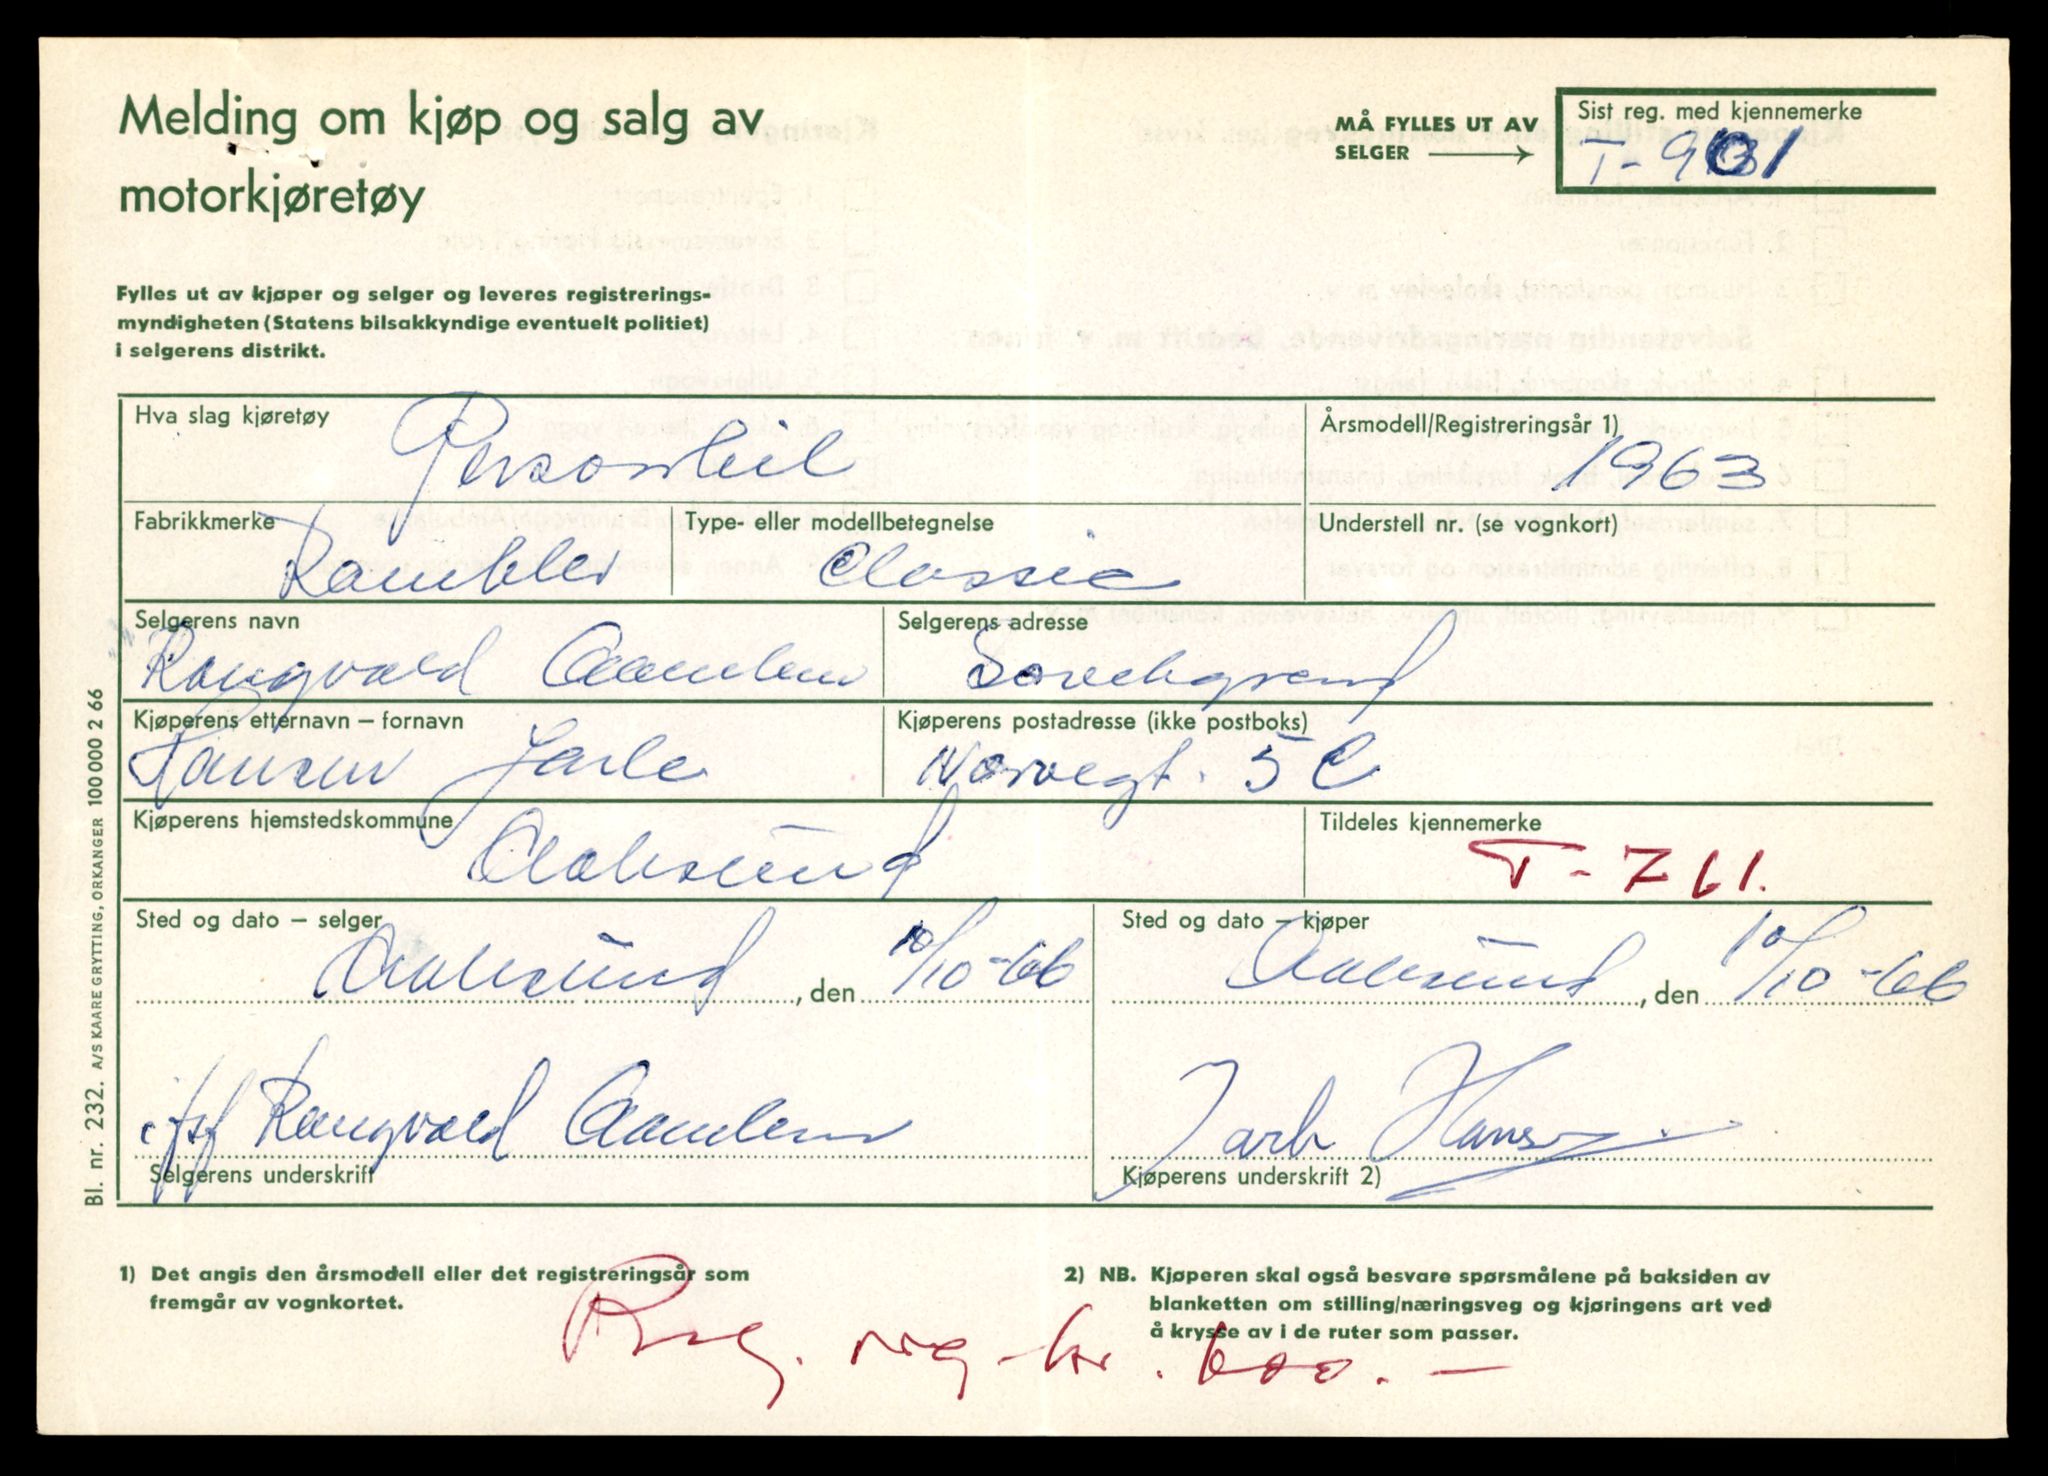 Melding om kjøp og salg av
motorkjøretøy
MÅ FYLLES UT AV
SELGER
Sist reg. med kjennemerke
T-901
Fylles ut av kjøper og selger og leveres registrerings-
myndigheten (Statens bilsakkyndige eventuelt politiet)
i selgerens distrikt.
Hva slag kjøretøy
Personbil
Årsmodell/Registreringsår 1)
1963
Fabrikkmerke
Rambler
Type- eller modellbetegnelse
Classic
Understell nr. (se vognkort)
Selgerens navn
Rangvald Aamlem
Selgerens adresse
Kjøperens etternavn – fornavn
Hansen Jarle
Kjøperens postadresse (ikke postboks)
Nørvegt. 5 C
Kjøperens hjemstedskommune
Aalesund
Tildeles kjennemerke
T-761.
Sted og dato – selger
Aalesund, den 10/10-66
Sted og dato – kjøper
Aalesund, den 10/10-66
Rangvald Aamlem
Selgerens underskrift
Jarle Hansen
Kjøperens underskrift 2)
1) Det angis den årsmodell eller det registreringsår som
fremgår av vognkortet.
2) NB. Kjøperen skal også besvare spørsmålene på baksiden av
blanketten om stilling/næringsveg og kjøringens art ved
å krysse av i de ruter som passer.
Reg. avg. kr. 600.-
Bl. nr. 232. A/S KAARE GRYTTING, ORKANGER 100 000 2 66